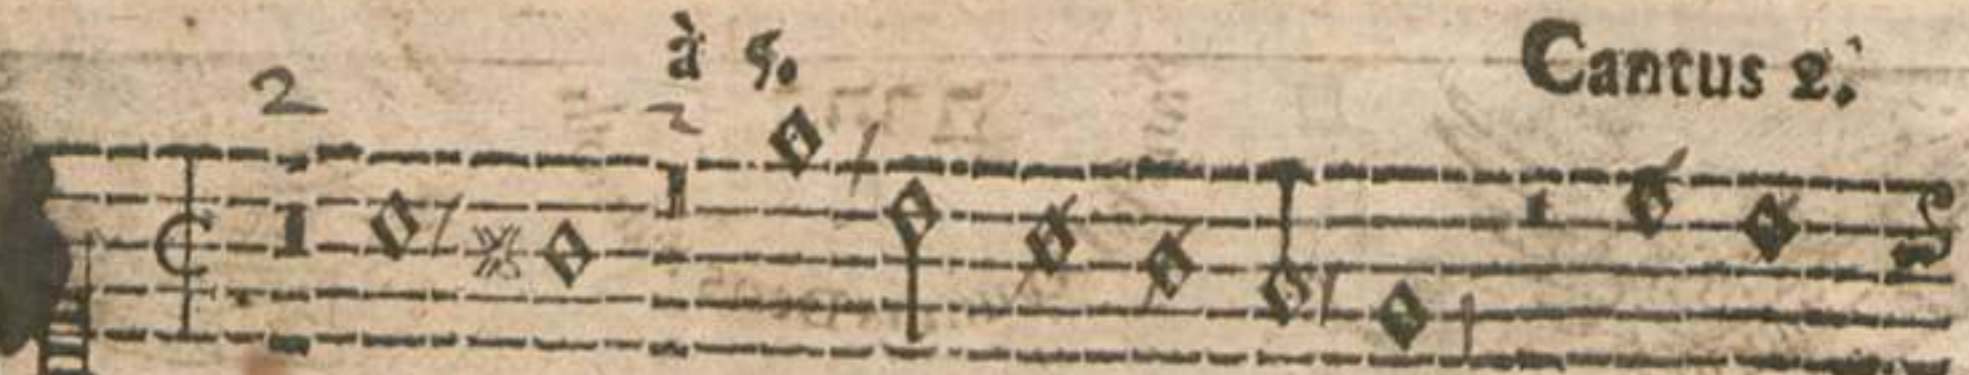 à 5. Cantus 2.
2 2